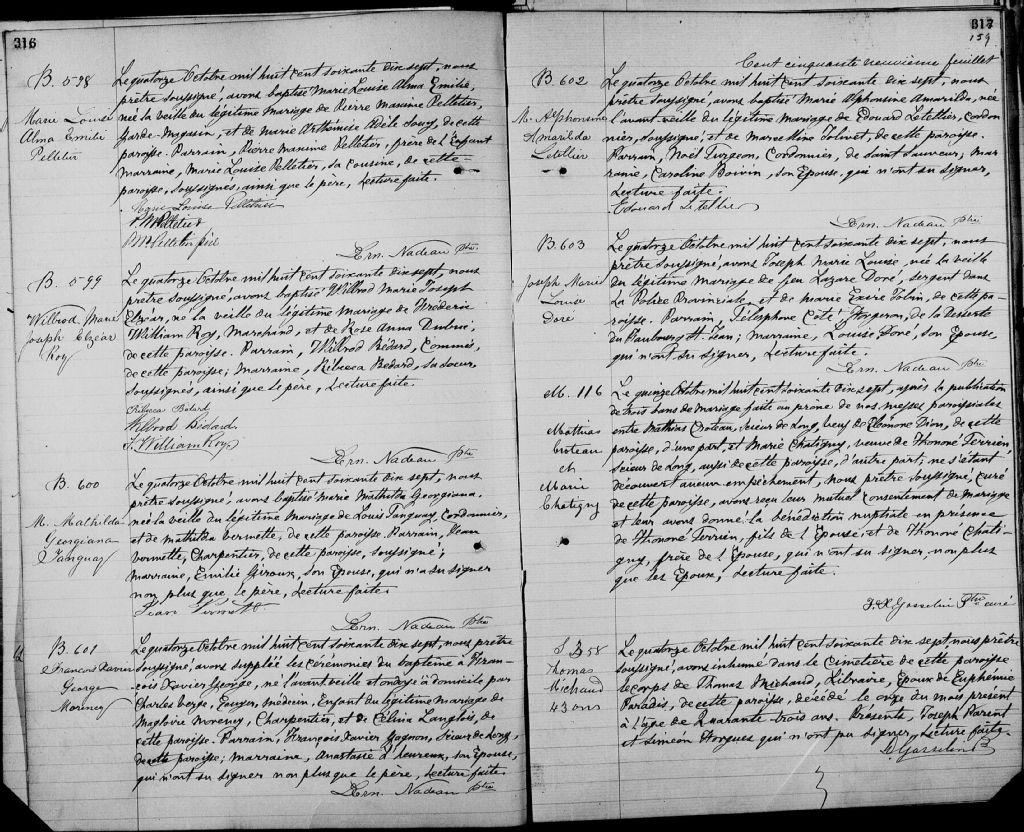 316
B. 598
Marie Louise
Alma Emilie
Pelletier
Le quatorze Octobre mil huit cent soixante dix sept, nous
prêtre soussigné, avons baptisé Marie Louise Alma Emilie,
née la veille du légitime mariage de Pierre Maxime Pelletier,
Garde-Magasin, et de Marie Arthémise Adèle Soucy, de cette
paroisse. Parrain, Pierre Maxime Pelletier, frère de l'Enfant
marraine, Marie Louise Pelletier, sa cousine, de cette
paroisse, soussignés, ainsi que le père, Lecture faite.
Marie Louise Pelletier
P. M. Pelletier
P. M. Pelletier fils
Ern. Nadeau Ptre
B. 599
Wilbrod Marie
Joseph Elzéar
Roy
Le quatorze Octobre mil huit cent soixante dix sept, nous
prêtre soussigné, avons baptisé Wilbrod Marie Joseph
Elzéar, né la veille du légitime mariage de Fréderic
William Roy, Marchand, et de Rose Anna Dubuc,
de cette paroisse. Parrain, Wilbrod Bédard, Commis,
de cette paroisse; Marraine, Rébecca Bédard, sa soeur,
soussignés, ainsi que le père, Lecture faite.
Rébecca Bédard
Wilbrod Bédard
F. William Roy
Ern. Nadeau Ptre
B. 600
M. Mathilda
Georgiana
Tanguay
Le quatorze Octobre mil huit cent soixante dix sept, nous
prêtre soussigné, avons baptisé Marie Mathilda Georgiana,
née la veille du légitime mariage de Louis Tanguay, Cordonnier,
et de Mathilda Vermette, de cette paroisse. Parrain, Jean
Vermette, Charpentier, de cette paroisse, soussigné;
marraine, Emilie Giroux, son Epouse, qui n'a su signer
non plus que le père, Lecture faite.
Jean Vermette
Ern. Nadeau Ptre
B. 601
Francois Xavier
George
Morency
Le quatorze Octobre mil huit cent soixante dix sept, nous prêtre
soussigné, avons suppléé les cérémonies du baptême à Fran-
çois Xavier George, né l'avant veille et ondoyé à domicile par
Charles Verge, Ecuyer, Médecin, Enfant du légitime mariage de
Magloire Morency, Charpentier, et de Célina Langlois, de
cette paroisse. Parrain, François Xavier Gagnon, Scieur de Long,
de cette paroisse; marraine, Anastasie L'heureux, son Epouse,
qui n'ont su signer non plus que le père, Lecture faite.
Ern. Nadeau Ptre
317
159
Cent cinquante neuvième feuillet
B. 602
M. Alphonsine
Amarilda
Letellier
Le quatorze Octobre mil huit cent soixante dix sept, nous
prêtre soussigné, avons baptisé Marie Alphonsine Amarilda, née
l'avant veille du légitime mariage de Edouard Letellier, Cordon
nier, soussigné, et de Marceline Jolivet, de cette paroisse.
Parrain, Noël Turgeon, Cordonnier, de Saint Sauveur; mar
raine, Caroline Boivin, son Epouse, qui n'ont su signer,
Lecture faite.
Edouard Letellier
Ern. Nadeau Ptre
B. 603
Joseph Marie
Louise
Doré
Le quatorze Octobre mil huit cent soixante dix sept, nous
prêtre soussigné avons Joseph Marie Louise, née la veille
du légitime mariage de feu Lazare Doré, sergent dans
La Police Provinciale, et de Marie Exire Tobin, de cette pa-
roisse. Parrain, Télesphore Coté, Forgeron, de la Desserte
du Faubourg St. Jean; marraine, Louise Doré, son Epouse,
qui n'ont su signer, Lecture faite.
Ern. Nadeau Ptre
M. 116
Mathias
Croteau
et
Marie
Chatigny
Le quinze Octobre mil huit cent soixante dix sept, après la publication
de trois bans de mariage faite au prône de nos messes paroissiales
entre Mathias Croteau, scieur de Long, veuf de Eléonore Dion, de cette
paroisse, d'une part, et Marie Chatigny, veuve de Honoré Terrien,
scieur de Long, aussi de cette paroisse, d'autre part; ne s'étant
découvert aucun empêchement, nous prêtre soussigné, curé
de cette paroisse, avons reçu leur mutuel consentement de mariage
et leur avons donné la bénédiction nuptiale en présence
de Honoré Terrien, fils de l'Epouse, et de Honoré Chati-
gny, frère de l'Epouse, qui n'ont su signer, non plus
que les Epoux, Lecture faite.
F. X. Gosselin Ptre curé
S 258
Thomas
Michaud
43 ans
Le quatorze Octobre mil huit cent soixante dix sept, nous prêtre
soussigné, avons inhumé dans le Cimetière de cette paroisse
le corps de Thomas Michaud, Libraire, Epoux de Euphémie
Paradis, de cette paroisse, décédé le onze du mois présent
à l'âge de Quarante trois ans. Présents, Joseph Parent
et Siméon Forgues qui n'ont pu signer, Lecture faite.
D. Gosselin